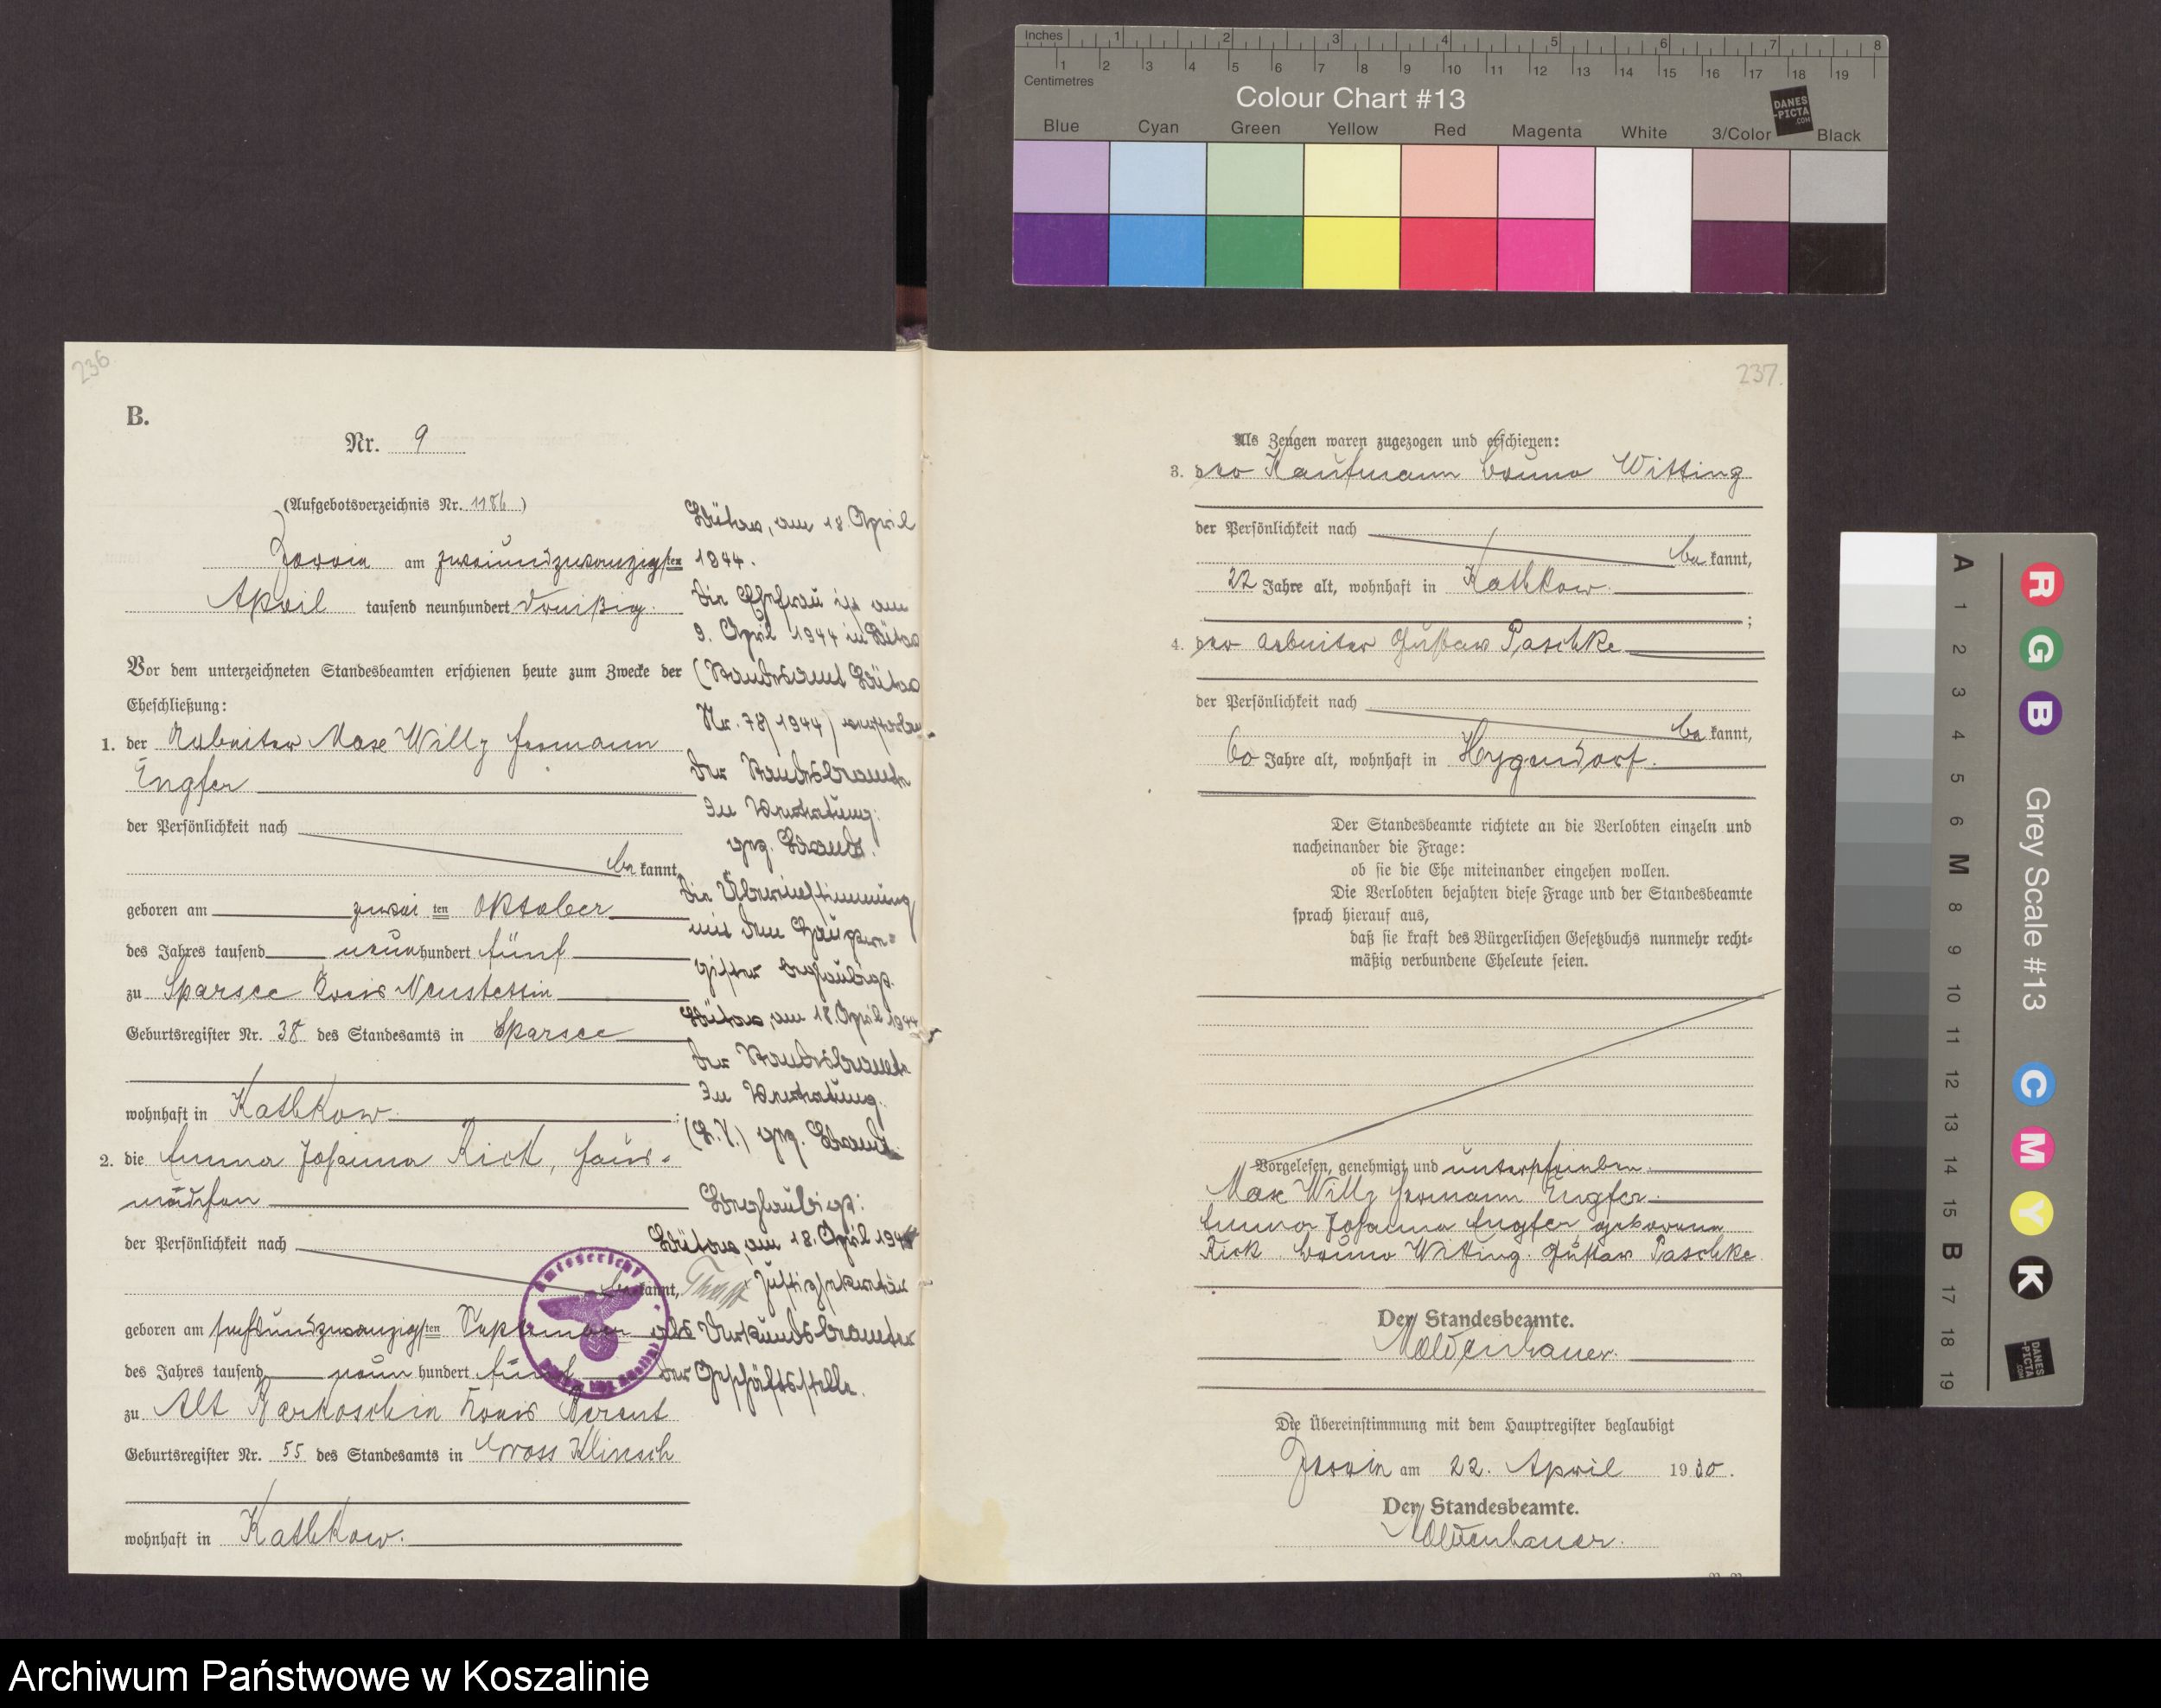 Inches 1 2 3 4 5 6 7 8
1 2 3 4 5 6 7 8 9 10 11 12 13 14 15 16 17 18 19
Centimetres
Colour Chart #13
DANES
-PICTA
.COM
Blue Cyan Green Yellow Red Magenta White 3/Color Black
236
B.
Nr. 9
(Aufgebotsverzeichnis Nr. 1186)
am zweiundzwanzigsten
April tausend neunhundert dreißig.
Vor dem unterzeichneten Standesbeamten erschienen heute zum Zwecke der
Eheschließung:
1. der Arbeiter Max Willy Hermann
Engfer
der Persönlichkeit nach
be kannt,
geboren am zwei ten Oktober
des Jahres tausend neunhundert fünf
zu Sparsee Kreis Neustettin
Geburtsregister Nr. 38 des Standesamts in Sparsee
wohnhaft in Kathkow. ;
2. die Emma Johanna Rick, Haus-
mädchen
der Persönlichkeit nach
be kannt,
geboren am sechsundzwanzigsten September
des Jahres tausend neun hundert fünf
zu Alt Barkoschin Kreis Berent
Geburtsregister Nr. 55 des Standesamts in Gross Klinsch
wohnhaft in Kathkow.
Bütow, am 18. April
1944.
Die Ehefrau ist am
9. April 1944 in Bütow
(Standesamt Bütow
Nr. 78/1944) verstorben.
Der Standesbeamte
In Vertretung:
gez.
Die Übereinstimmung
mit dem Hauptre=
gister beglaubigt.
Bütow, am 18. April 1944
Der Standesbeamte
In Vertretung.
(L.S.) gez.
Beglaubigt:
Bütow, am 18. April 1944
Justizsekretär
als Urkundsbeamter
der Geschäftsstelle.
Amtsgericht
237.
Als Zeugen waren zugezogen und erschienen:
3. der Kaufmann Bruno Witting
der Persönlichkeit nach
be kannt,
22 Jahre alt, wohnhaft in Kathkow.
;
4. der Arbeiter Gustav Paschke
der Persönlichkeit nach
be kannt,
60 Jahre alt, wohnhaft in Hygendorf.
Der Standesbeamte richtete an die Verlobten einzeln und
nacheinander die Frage:
ob sie die Ehe miteinander eingehen wollen.
Die Verlobten bejahten diese Frage und der Standesbeamte
sprach hierauf aus,
daß sie kraft des Bürgerlichen Gesetzbuchs nunmehr recht=
mäßig verbundene Eheleute seien.
Vorgelesen, genehmigt und unterschrieben.
Max Willy Hermann Engfer.
Emma Johanna Engfer, geborene
Rick. Bruno Witting. Gustav Paschke
Der Standesbeamte.
Moldenhauer.
Die Übereinstimmung mit dem Hauptregister beglaubigt
am 22. April 1930.
Der Standesbeamte.
Moldenhauer.
R G B Grey Scale #13 C M Y K
A 1 2 3 4 5 6 M 8 9 10 11 12 13 14 15 B 17 18 19
DANES
-PICTA
.COM
Archiwum Państwowe w Koszalinie